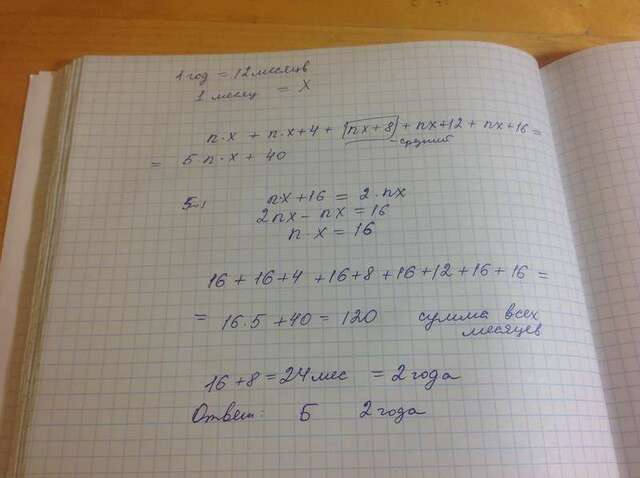 1 год = 12 месяцв
1 месец = X
n·x + n·x+4 + |nx+8| + nx+12 + nx+16 =
- средний
= 5·n·x + 40
nx+16 = 2·nx
2nx - nx = 16
n·x = 16
16 + 16+4 + 16+8 + 16+12 + 16+16 =
= 16·5 + 40 = 120 сумма всех
месяцев
16 + 8 = 24 мес = 2 года
Ответ: Б 2 года